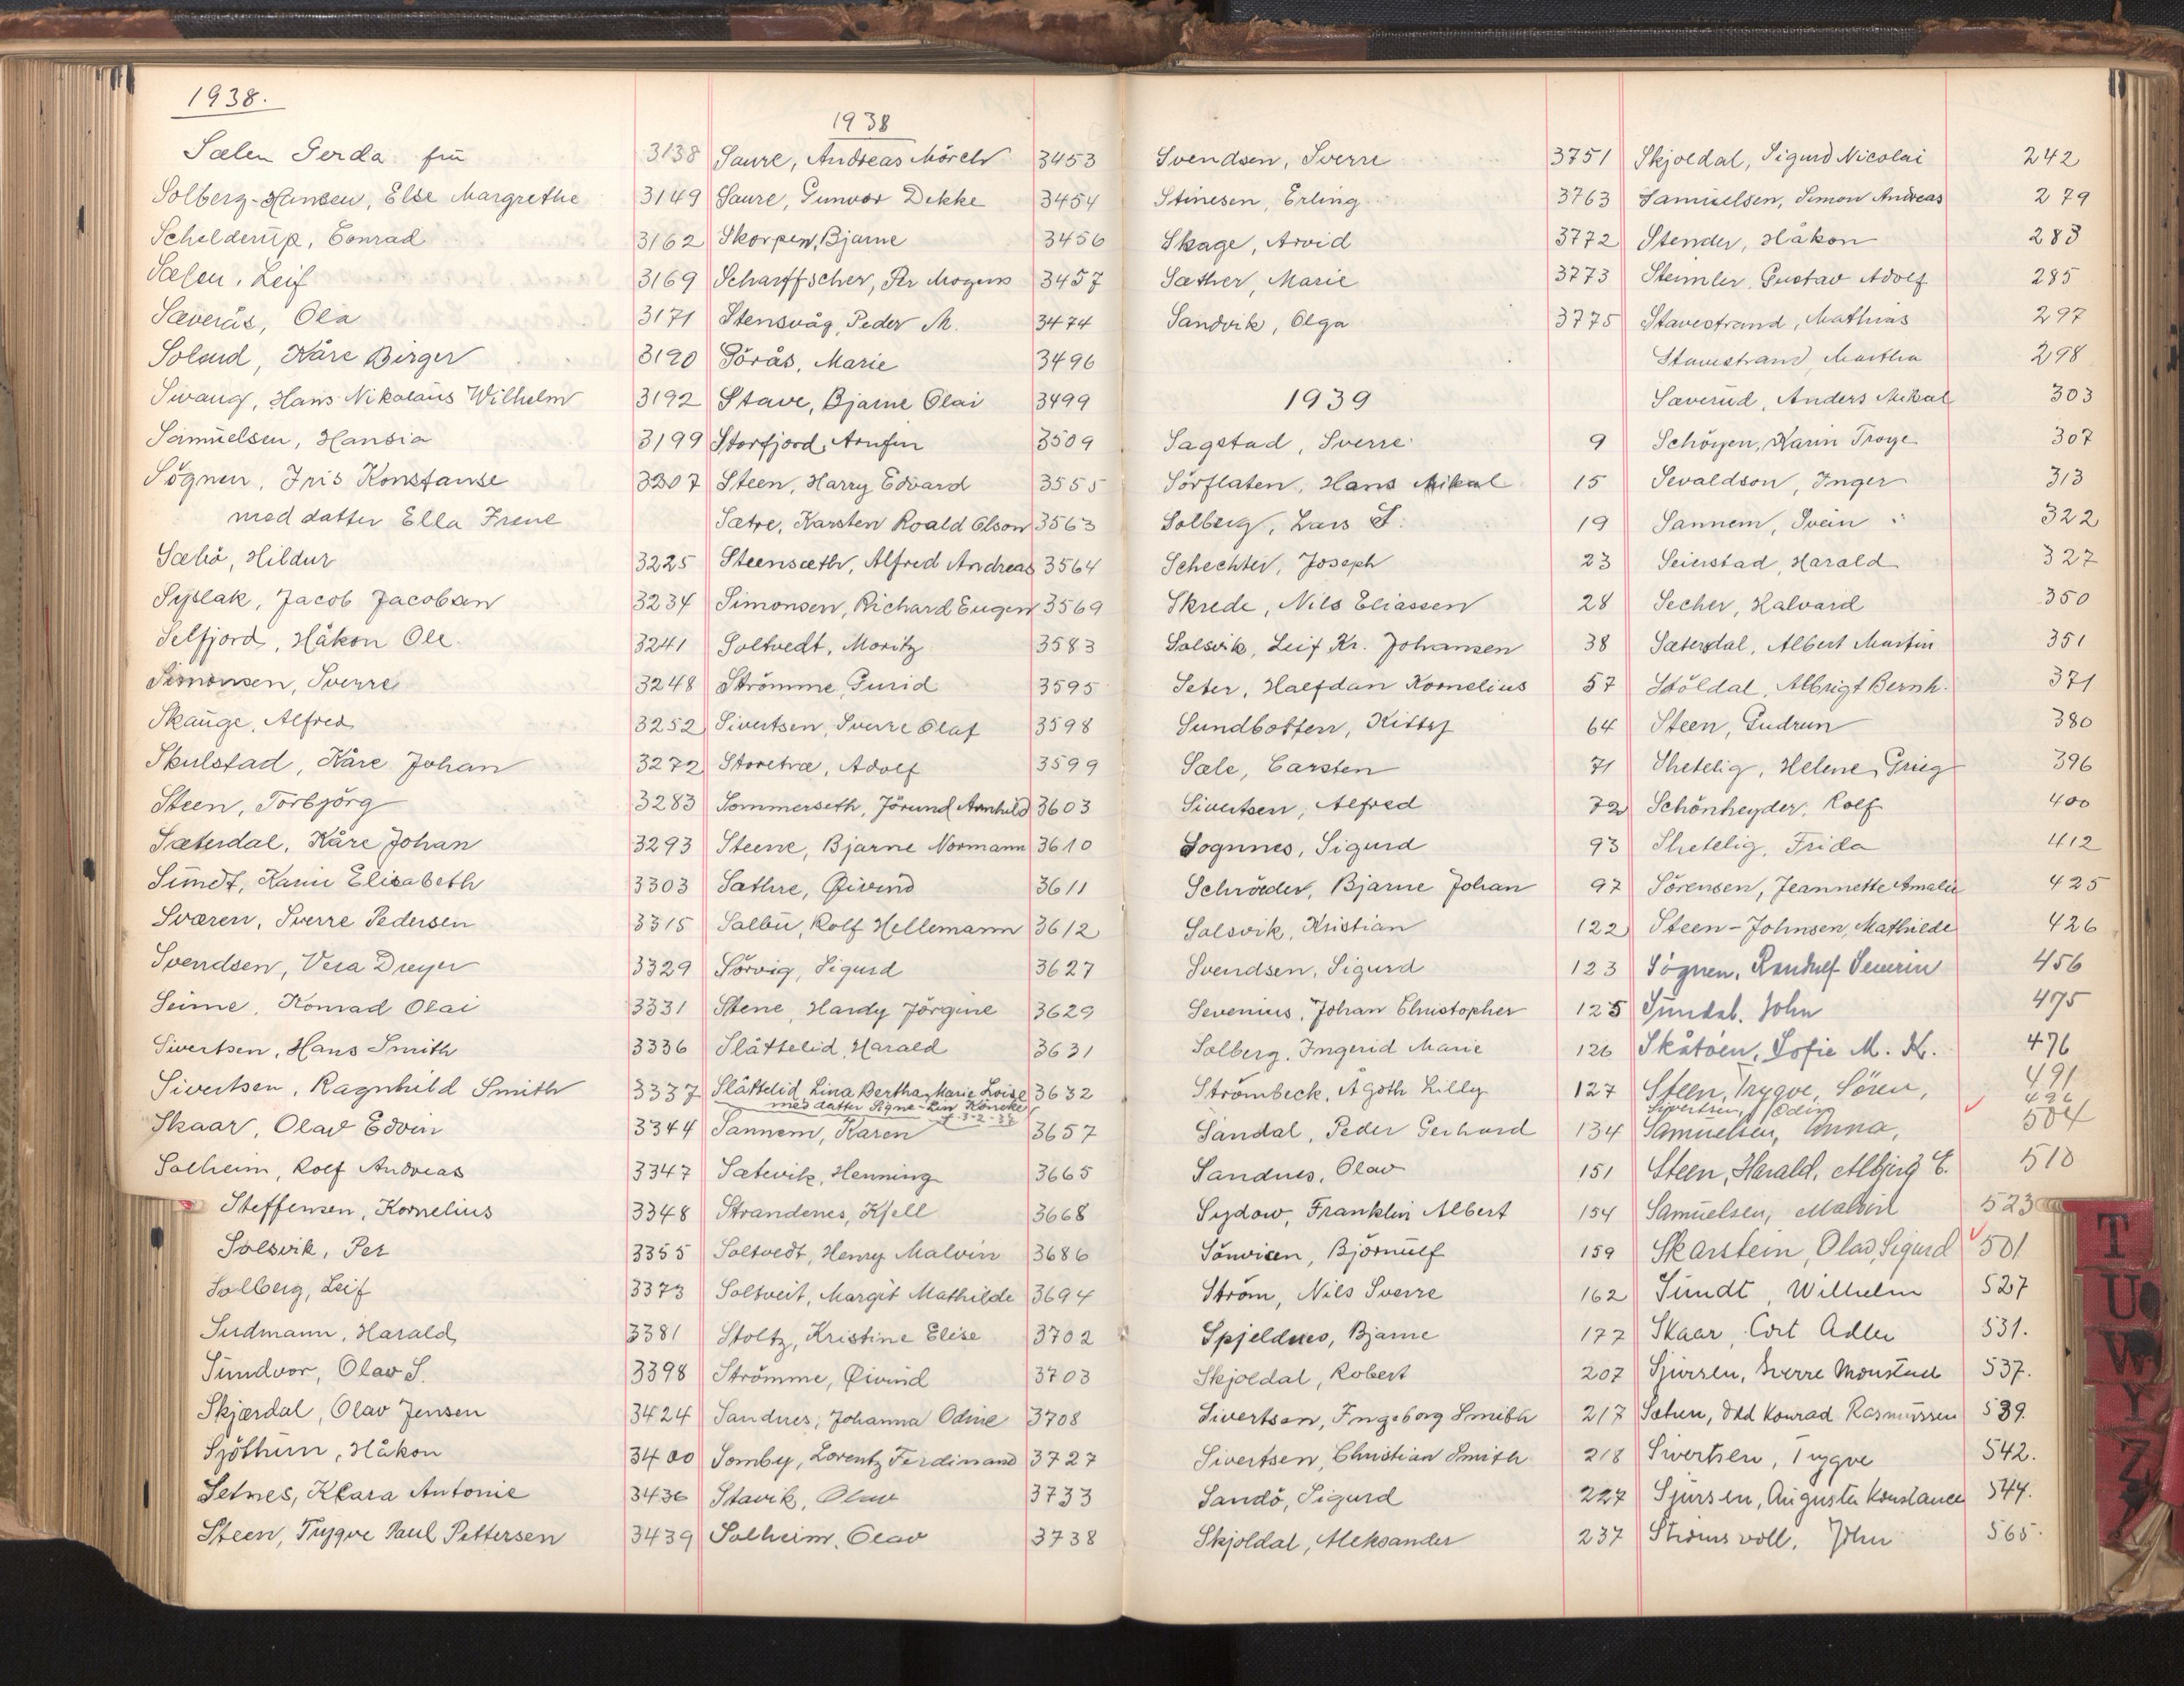 1938.
Sælen Gerda frü 3138
Solberg-Hansen, Else Margrethe 3149
Schelderüp, Conrad 3162
Sælen, Leif 3169
Sæverås, Ola 3171
Solend, Kåre Birger 3190
Swang, Hans Nikolaüs Wilhelm 3192
Samüelsen, Hansia 3199
Sögnen, Iris Konstanse 3207
med datter Ella Irene
Sæbö, Hildur 3225
Syslak, Jacob Jacobsen 3234
Selfjord, Håkon Ole. 3241
Simonsen, Sverre 3248
Skaüge, Alfred 3252
Skulstad, Kåre Johan 3272
Steen, Torbjörg 3283
Sæterdal, Kåre Johan 3293
Sündt, Karin Elisabeth 3303
Sværen, Sverre Pedersen 3315
Svendsen, Vera Dreyer 3329
Seime, Konrad Olai 3331
Sivertsen, Hans Smith 3336
Sivertsen, Ragnhild Smith 3337
Skaar, Olav Edvin 3344
Solheim, Rolf Andreas 3347
Steffensen, Kornelius 3348
Solsvik, Per 3355
Solberg, Leif 3373
Sudmann, Harald 3381
Sündvor, Olav S. 3398
Skjærdal, Olav Jensen 3424
Sjöthün, Håkon 3400
Setnes, Klara Antonie 3436
Steen, Trygve Paul Pettersen 3439
1938
Saure, Andreas Mörch 3453
Saure, Gunvor Dekke 3454
Skorpen, Bjarne 3456
Scharffscher, Per Mogens 3457
Stensvåg, Peder M. 3474
Sörås, Marie 3496
Stave, Bjarne Olai 3499
Storfjord, Arnfin 3509
Steen, Harry Edvard 3555
Sætre, Karsten Roald Olson 3563
Steensæth, Alfred Andreas 3564
Simonsen, Richard Eugen 3569
Soltvedt, Moritz 3583
Strömme, Gurid 3595
Sivertsen, Sverre Olaf 3598
Storetvæ, Adolf 3599
Sommerseth, Jörund Arnhild 3603
Steene, Bjarne Normann 3610
Sæthre, Øivind 3611
Salbü, Rolf Hellemann 3612
Sörvig, Sigurd 3627
Stene, Hardy Jörgine 3629
Slåttelid, Harald 3631
Slåttelid, Lina Bertha Marie Loise 3632
med datter Signe-Lin Köneke f. 3-2-38
Sannem, Karen 3657
Sætevik, Henning 3665
Strandenes, Kjell 3668
Soltvedt, Henry Malvin 3686
Soltveit, Margit Mathilde 3694
Stoltz, Kristine Elise 3702
Strömme, Øivind 3703
Sandnes, Johanna Odine 3708
Somby, Lorentz Ferdinand 3727
Stavik, Olav 3733
Solheim, Olav 3738
Svendsen, Sverre 3751
Stinesen, Erling 3763
Skage, Arvid 3772
Sæther, Marie 3773
Sandvik, Olga 3775
1939
Sagstad, Sverre 9
Sörflaten, Hans Mikal 15
Solberg, Lars S. 19
Schechter, Joseph 23
Skrede, Nils Eliassen 28
Solsvik, Leif Kr. Johansen 38
Seter, Halfdan Kornelius 57
Sundbotten, Kittey 64
Sæle, Carsten 71
Sivertsen, Alfred 72
Sognnes, Sigurd 93
Schröeder, Bjarne Johan 97
Solsvik, Kristian 122
Svendsen, Sigurd 123
Sevenius, Johan Christopher 125
Solberg, Ingerid Marie 126
Strömbeck, Ågoth Lilly 127
Sandal, Peder Gerhard 134
Sandnes, Olav 151
Sydow, Franklin Albert 154
Sönvisen, Björnülf 159
Ström, Nils Sverre 162
Spjeldnes, Bjarne 177
Skjoldal, Robert 207
Sivertsen, Ingeborg Smith 217
Sivertsen, Christian Smith 218
Sandö, Sigurd 227
Skjoldal, Aleksander 237
Skjoldal, Sigurd Nicolai 242
Samüelsen, Simon Andreas 279
Stender, Håkon 283
Steimler, Gustav Adolf 285
Stavestrand, Mathias 297
Stavestrand, Martha 298
Sæverüd, Anders Mikal 303
Schöyen, Karin Troye 307
Sevaldson, Inger 313
Sannem, Svein 322
Seierstad, Harald 327
Secher, Halvard 350
Sæterdal, Albert Martin 351
Stöldal, Albrigt Bernh. 371
Steen, Gudrun 380
Shetelig, Helene Grieg 396
Schönheyder, Rolf 400
Shetelig, Frida 412
Sörensen, Jeannette Amalie 425
Steen-Johnsen, Mathilde 426
Sögnen, Randulf Severin 456
Sündal, John 475
Skåtöen, Sofie M. K. 476
Steen, Trygve, Sören, 491
Sivertsen, Odin 496
Samuelsen, Anna, 504
Steen, Harald, Albjerg E. 510
Samüelsen, Malvin 523
Skarstein, Olav, Sigurd 501
Sündt, Wilhelm 527
Skaar, Cort Adler 531.
Sjursen, Sverre Monstad 537.
Sætren, Odd Konrad Rasmüssen 539.
Sivertsen, Trygve 542.
Sjursen, Augusta Konstance 544.
Strömsvoll, John 565.
T
U
W
Y
Z